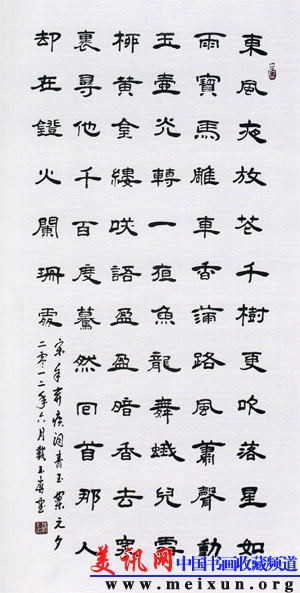 東風夜放花千樹更吹落星如
雨寶馬雕車香滿路風蕭聲動
玉壺光轉一夜魚龍舞蛾兒雪
柳黃金縷咲語盈盈暗香去衆
裏尋他千百度驀然回首那人
却在鐙火闌珊處
宋辛弃疾词青玉案元夕
二零一二年六月戴玉
美讯网
中国书画收藏频道
www.meixun.org